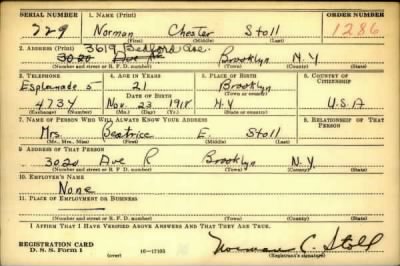 SERIAL NUMBER 1. NAME (Print) ORDER NUMBER
729 Norman Chester Stoll 1286
(First) (Middle) (Last)
2. ADDRESS (Print) 3619 Bedford Ave.
3020 Ave R Brooklyn N.Y
(Number and street or R. F. D. number) (Town) (County) (State)
3. TELEPHONE 4. AGE IN YEARS 5. PLACE OF BIRTH 6. COUNTRY OF CITIZENSHIP
Esplanade 5 21 Brooklyn
DATE OF BIRTH (Town or county)
4734 Nov. 23 1918 N.Y U.S.A
(Exchange) (Number) (Mo.) (Day) (Yr.) (State or country)
7. NAME OF PERSON WHO WILL ALWAYS KNOW YOUR ADDRESS 8. RELATIONSHIP OF THAT PERSON
Mrs. Beatrice E. Stoll
(Mr., Mrs., Miss) (First) (Middle) (Last)
9. ADDRESS OF THAT PERSON
3020 Ave R Brooklyn N.Y.
(Number and street or R. F. D. number) (Town) (County) (State)
10. EMPLOYER'S NAME
None
11. PLACE OF EMPLOYMENT OR BUSINESS
(Number and street or R. F. D. number) (Town) (County) (State)
I AFFIRM THAT I HAVE VERIFIED ABOVE ANSWERS AND THAT THEY ARE TRUE.
REGISTRATION CARD
D. S. S. Form 1 (over) 16—17105 Norman C. Stoll
(Registrant's signature)